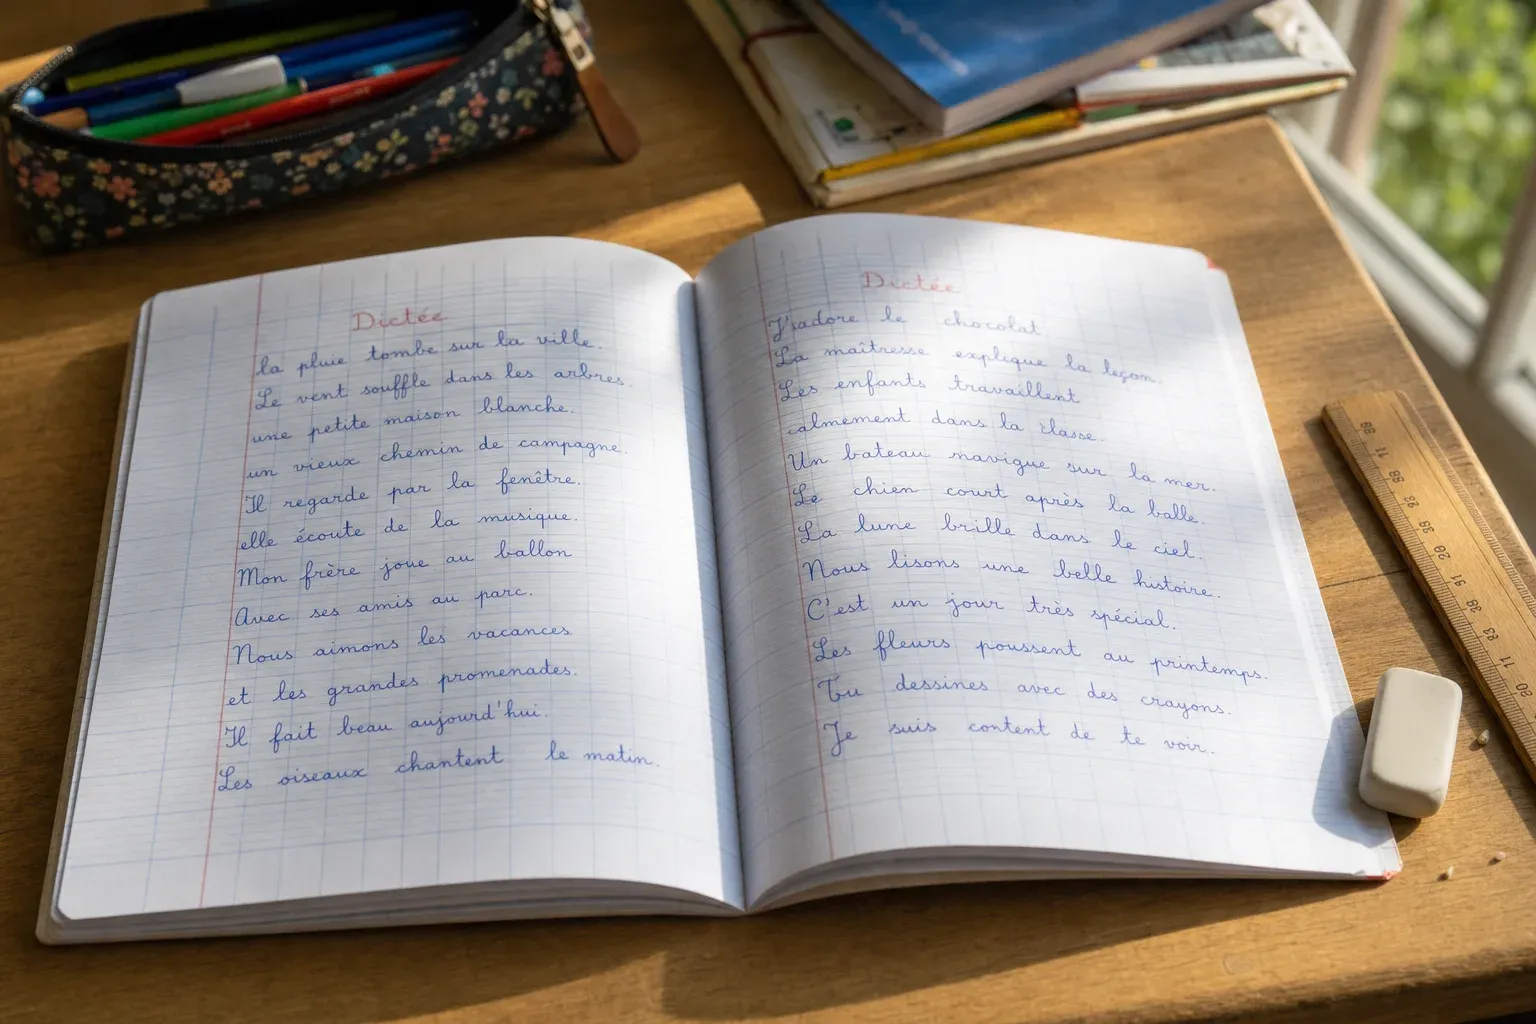 Dictée
la pluie tombe sur la ville.
Le vent souffle dans les arbres.
une petite maison blanche.
un vieux chemin de campagne.
Il regarde par la fenêtre.
elle écoute de la musique.
Mon frère joue au ballon
Avec ses amis au parc.
Nous aimons les vacances
et les grandes promenades.
Il fait beau aujourd'hui.
Les oiseaux chantent le matin.
Dictée
J'adore le chocolat.
La maîtresse explique la leçon.
Les enfants travaillent
calmement dans la classe.
Un bateau navigue sur la mer.
Le chien court après la balle.
La lune brille dans le ciel.
Nous lisons une belle histoire.
C'est un jour très spécial.
Les fleurs poussent au printemps.
Tu dessines avec des crayons.
Je suis content de te voir.